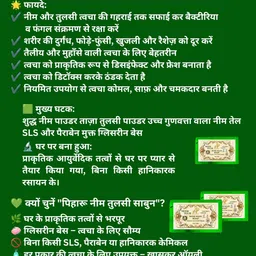 🌟 फायदे:
✔ नीम और तुलसी त्वचा की गहराई तक सफाई कर बैक्टीरिया
व फंगल संक्रमण से रक्षा करें
✔ शरीर की दुर्गंध, फोड़े-फुंसी, खुजली और रैशेज़ को दूर करें
✔ तैलीय और मुहाँसे वाली त्वचा के लिए बेहतरीन
✔ त्वचा को प्राकृतिक रूप से डिसइंफेक्ट और फ्रेश बनाता है
✔ त्वचा को डिटॉक्स करके ठंडक देता है
✔ नियमित उपयोग से त्वचा कोमल, साफ़ और चमकदार बनती है
🟩 मुख्य घटक:
शुद्ध नीम पाउडर ताज़ा तुलसी पाउडर उच्च गुणवत्ता वाला नीम तेल
SLS और पैराबेन मुक्त ग्लिसरीन बेस
🔬 घर पर बना हुआ:
प्राकृतिक आयुर्वेदिक तत्वों से घर पर प्यार से
तैयार किया गया, बिना किसी हानिकारक
रसायन के।
💚 क्यों चुनें "पिहारू नीम तुलसी साबुन"?
🌿 घर के प्राकृतिक तत्वों से भरपूर
🧼 ग्लिसरीन बेस – त्वचा के लिए सौम्य
🚫 बिना किसी SLS, पैराबेन या हानिकारक केमिकल
💧 हर प्रकार की त्वचा के लिए उपयुक्त – खासकर ऑयली